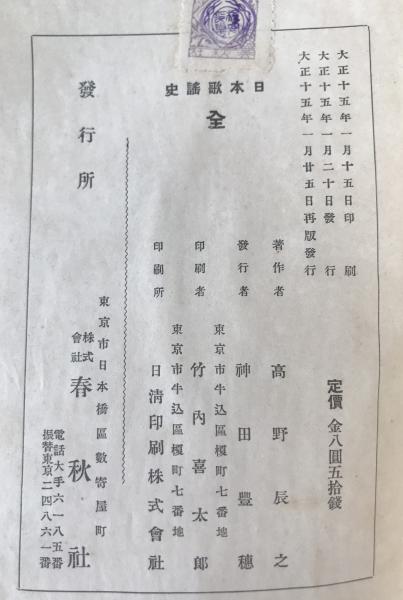 大正十五年一月十五日印刷
大正十五年一月二十日發行
大正十五年一月廿五日再版發行
日本歌謠史
全
定價 金八圓五拾錢
著作者 高野辰之
東京市牛込區榎町七番地
發行者 神田豐穗
東京市牛込區榎町七番地
印刷者 竹內喜太郎
印刷所 日清印刷株式會社
發行所
東京市日本橋區數寄屋町
株式會社 春秋社
電話大手六一八五番
振替東京二四八六一番